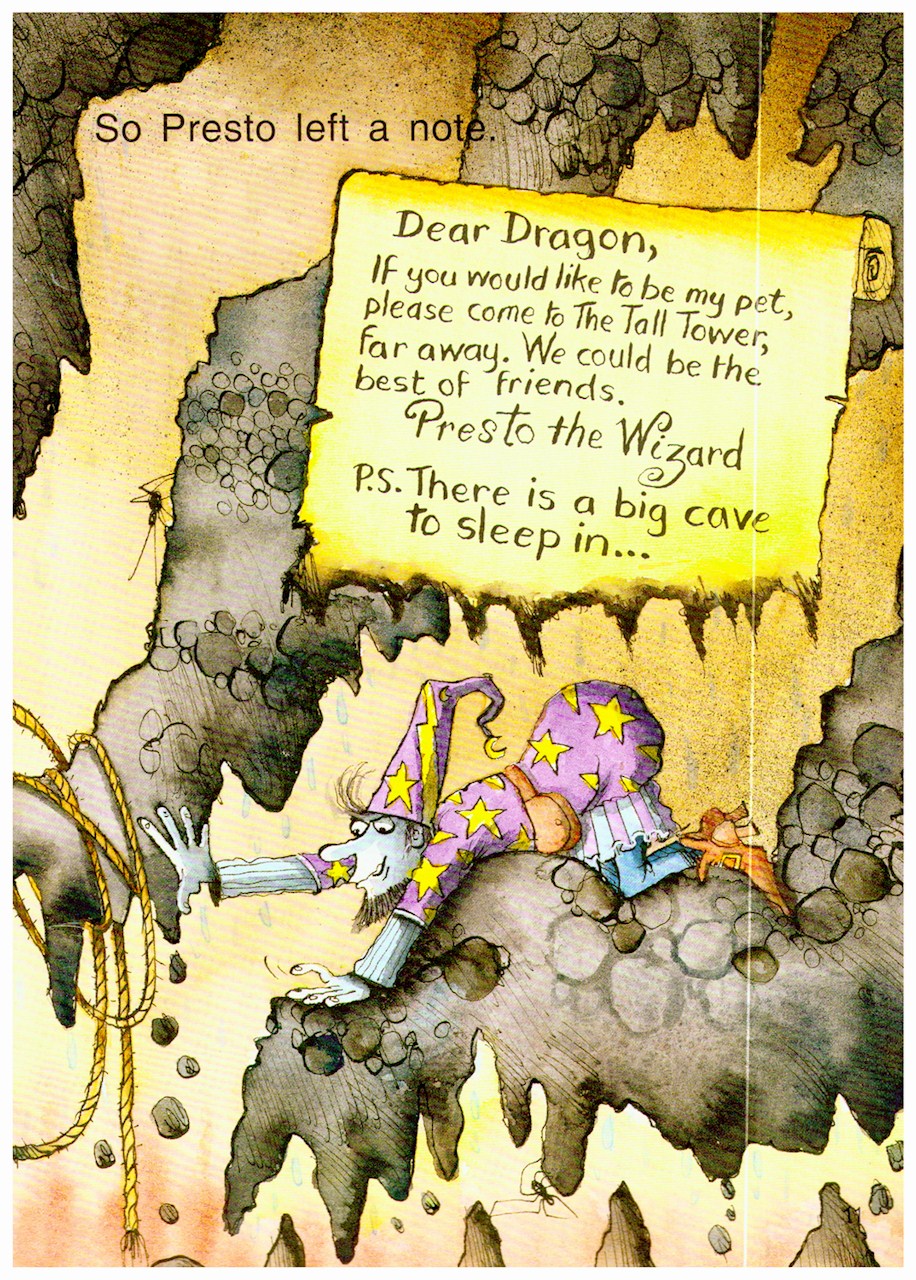 So Presto left a note.
Dear Dragon,
If you would like to be my pet,
please come to The Tall Tower,
far away. We could be the
best of friends.
Presto the Wizard
P.S. There is a big cave
to sleep in...
11